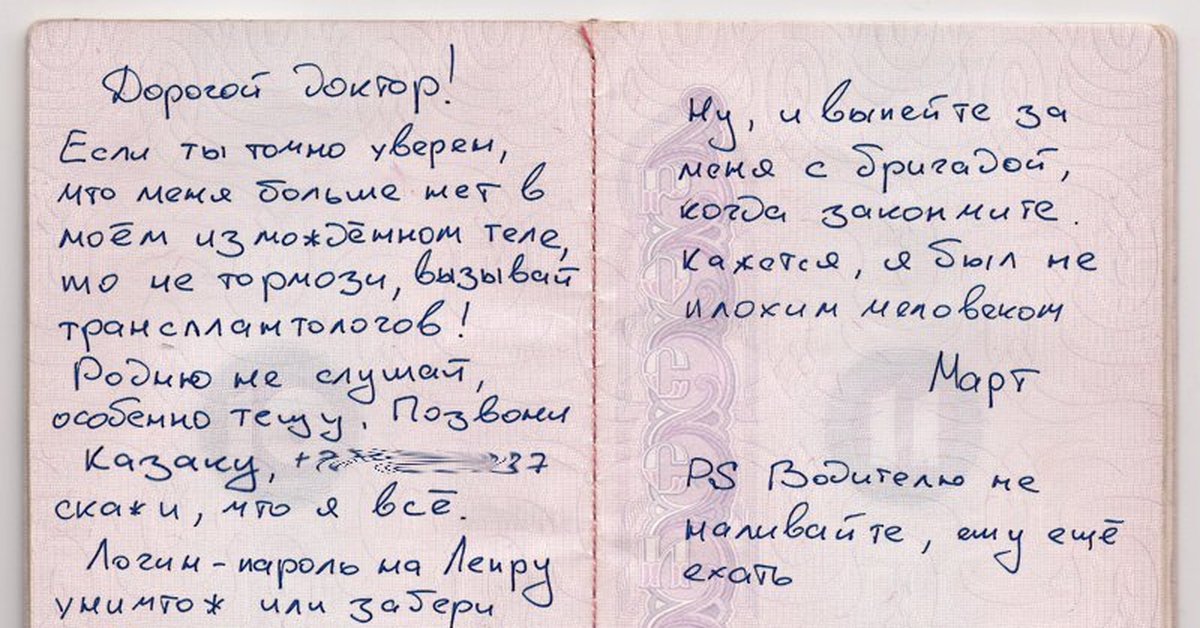 Дорогой доктор!
Если ты точно уверен,
что меня больше нет в
моём измождённом теле,
то не тормози, вызывай
трансплантологов!
Родню не слушай,
особенно тещу. Позвони
Казаку, +7 37
скажи, что я всё.
Логин-пароль на Лепру
уничтож или забери
Ну, и выпейте за
меня с бригадой,
когда закончите.
Кажется, я был не
плохим человеком
Март
PS Водителю не
наливайте, ему ещё
ехать